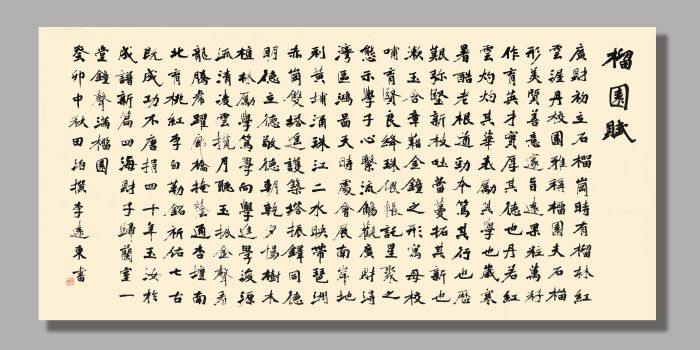 榴園賦
廣財初立石榴崗時有榴林紅
雲漫丹校園雅稱榴園夫石榴
形美質善意邃旨遠果粒萬籽
作育英才實厚其德也丹若紅
雲灼灼其華表勵其學也歲寒
暑酷老根遒勁本篤其行也歷
艱弥堅新枝吐蕾蔓拓其新也
漱玉含章藉金鐘之形寓母校
哺育賢良絳珠假帳託星聚之
態示學子心繫流觴觀廣財潯
灣區鴻啚天時處會展南岸地
利黄埔涌珠江二水映帶琶洲
赤崗雙塔遥護築塔振鐸同德
明德立德敬德朝乾夕惕樹木
植林勵學篤學向學進學浚源
流清凌雲攬月聽玉振金聲看
龍騰希躍廊橋掩蔭通杏壇南
北有桃紅李白勒銘祈佑七古
既成功不唐捐四十年玉汝於
成譜新篇四海財子歸蘭室一
堂鐘聲滿榴園
癸卯中秋田泊撰李遠東書